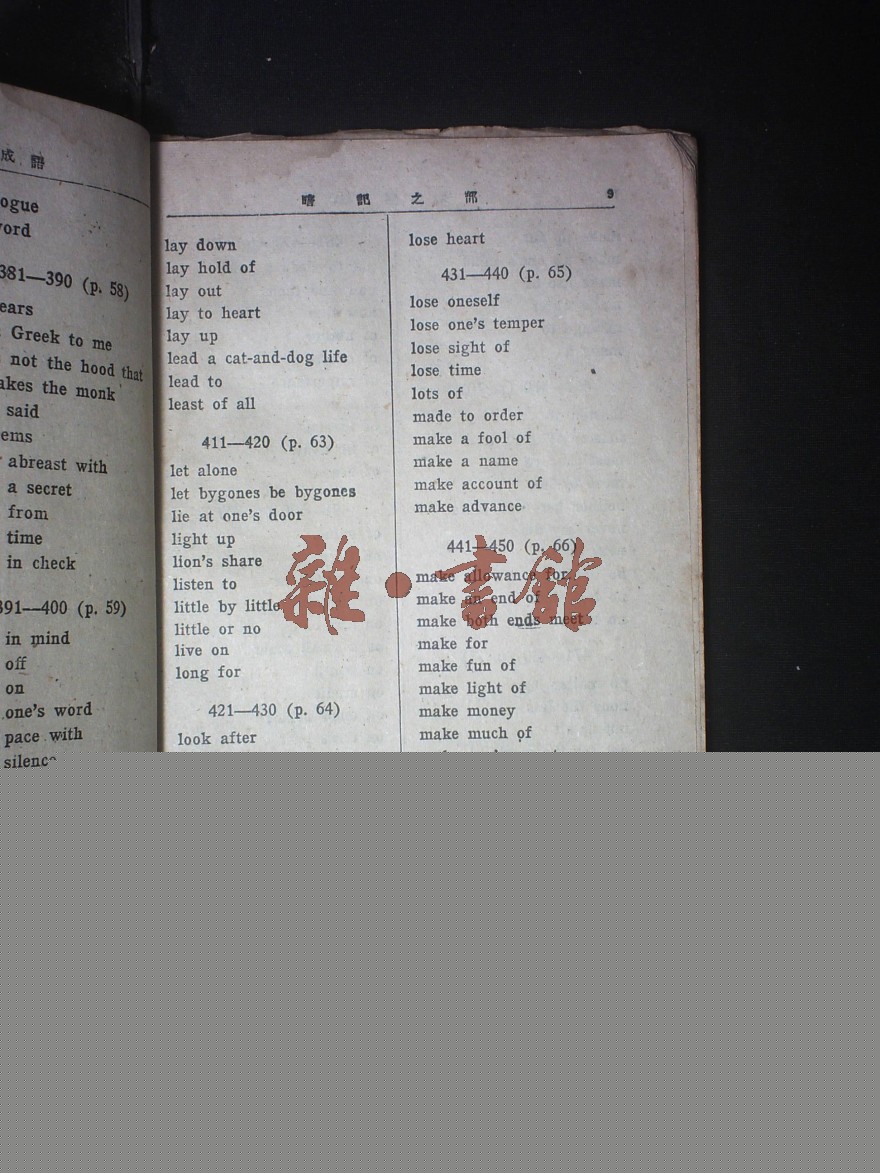 成語
ogue
ord
381—390 (p. 58)
ears
Greek to me
not the hood that
akes the monk
said
ems
abreast with
a secret
from
time
in check
391—400 (p. 59)
in mind
off
on
one's word
pace with
silenc
暗記之部 9
lay down
lay hold of
lay out
lay to heart
lay up
lead a cat-and-dog life
lead to
least of all
411—420 (p. 63)
let alone
let bygones be bygones
lie at one's door
light up
lion's share
listen to
little by little
little or no
live on
long for
421—430 (p. 64)
look after
lose heart
431—440 (p. 65)
lose oneself
lose one's temper
lose sight of
lose time
lots of
made to order
make a fool of
make a name
make account of
make advance
441—450 (p. 66)
make allowance for
make an end of
make both ends meet
make for
make fun of
make light of
make money
make much of
雜·書館